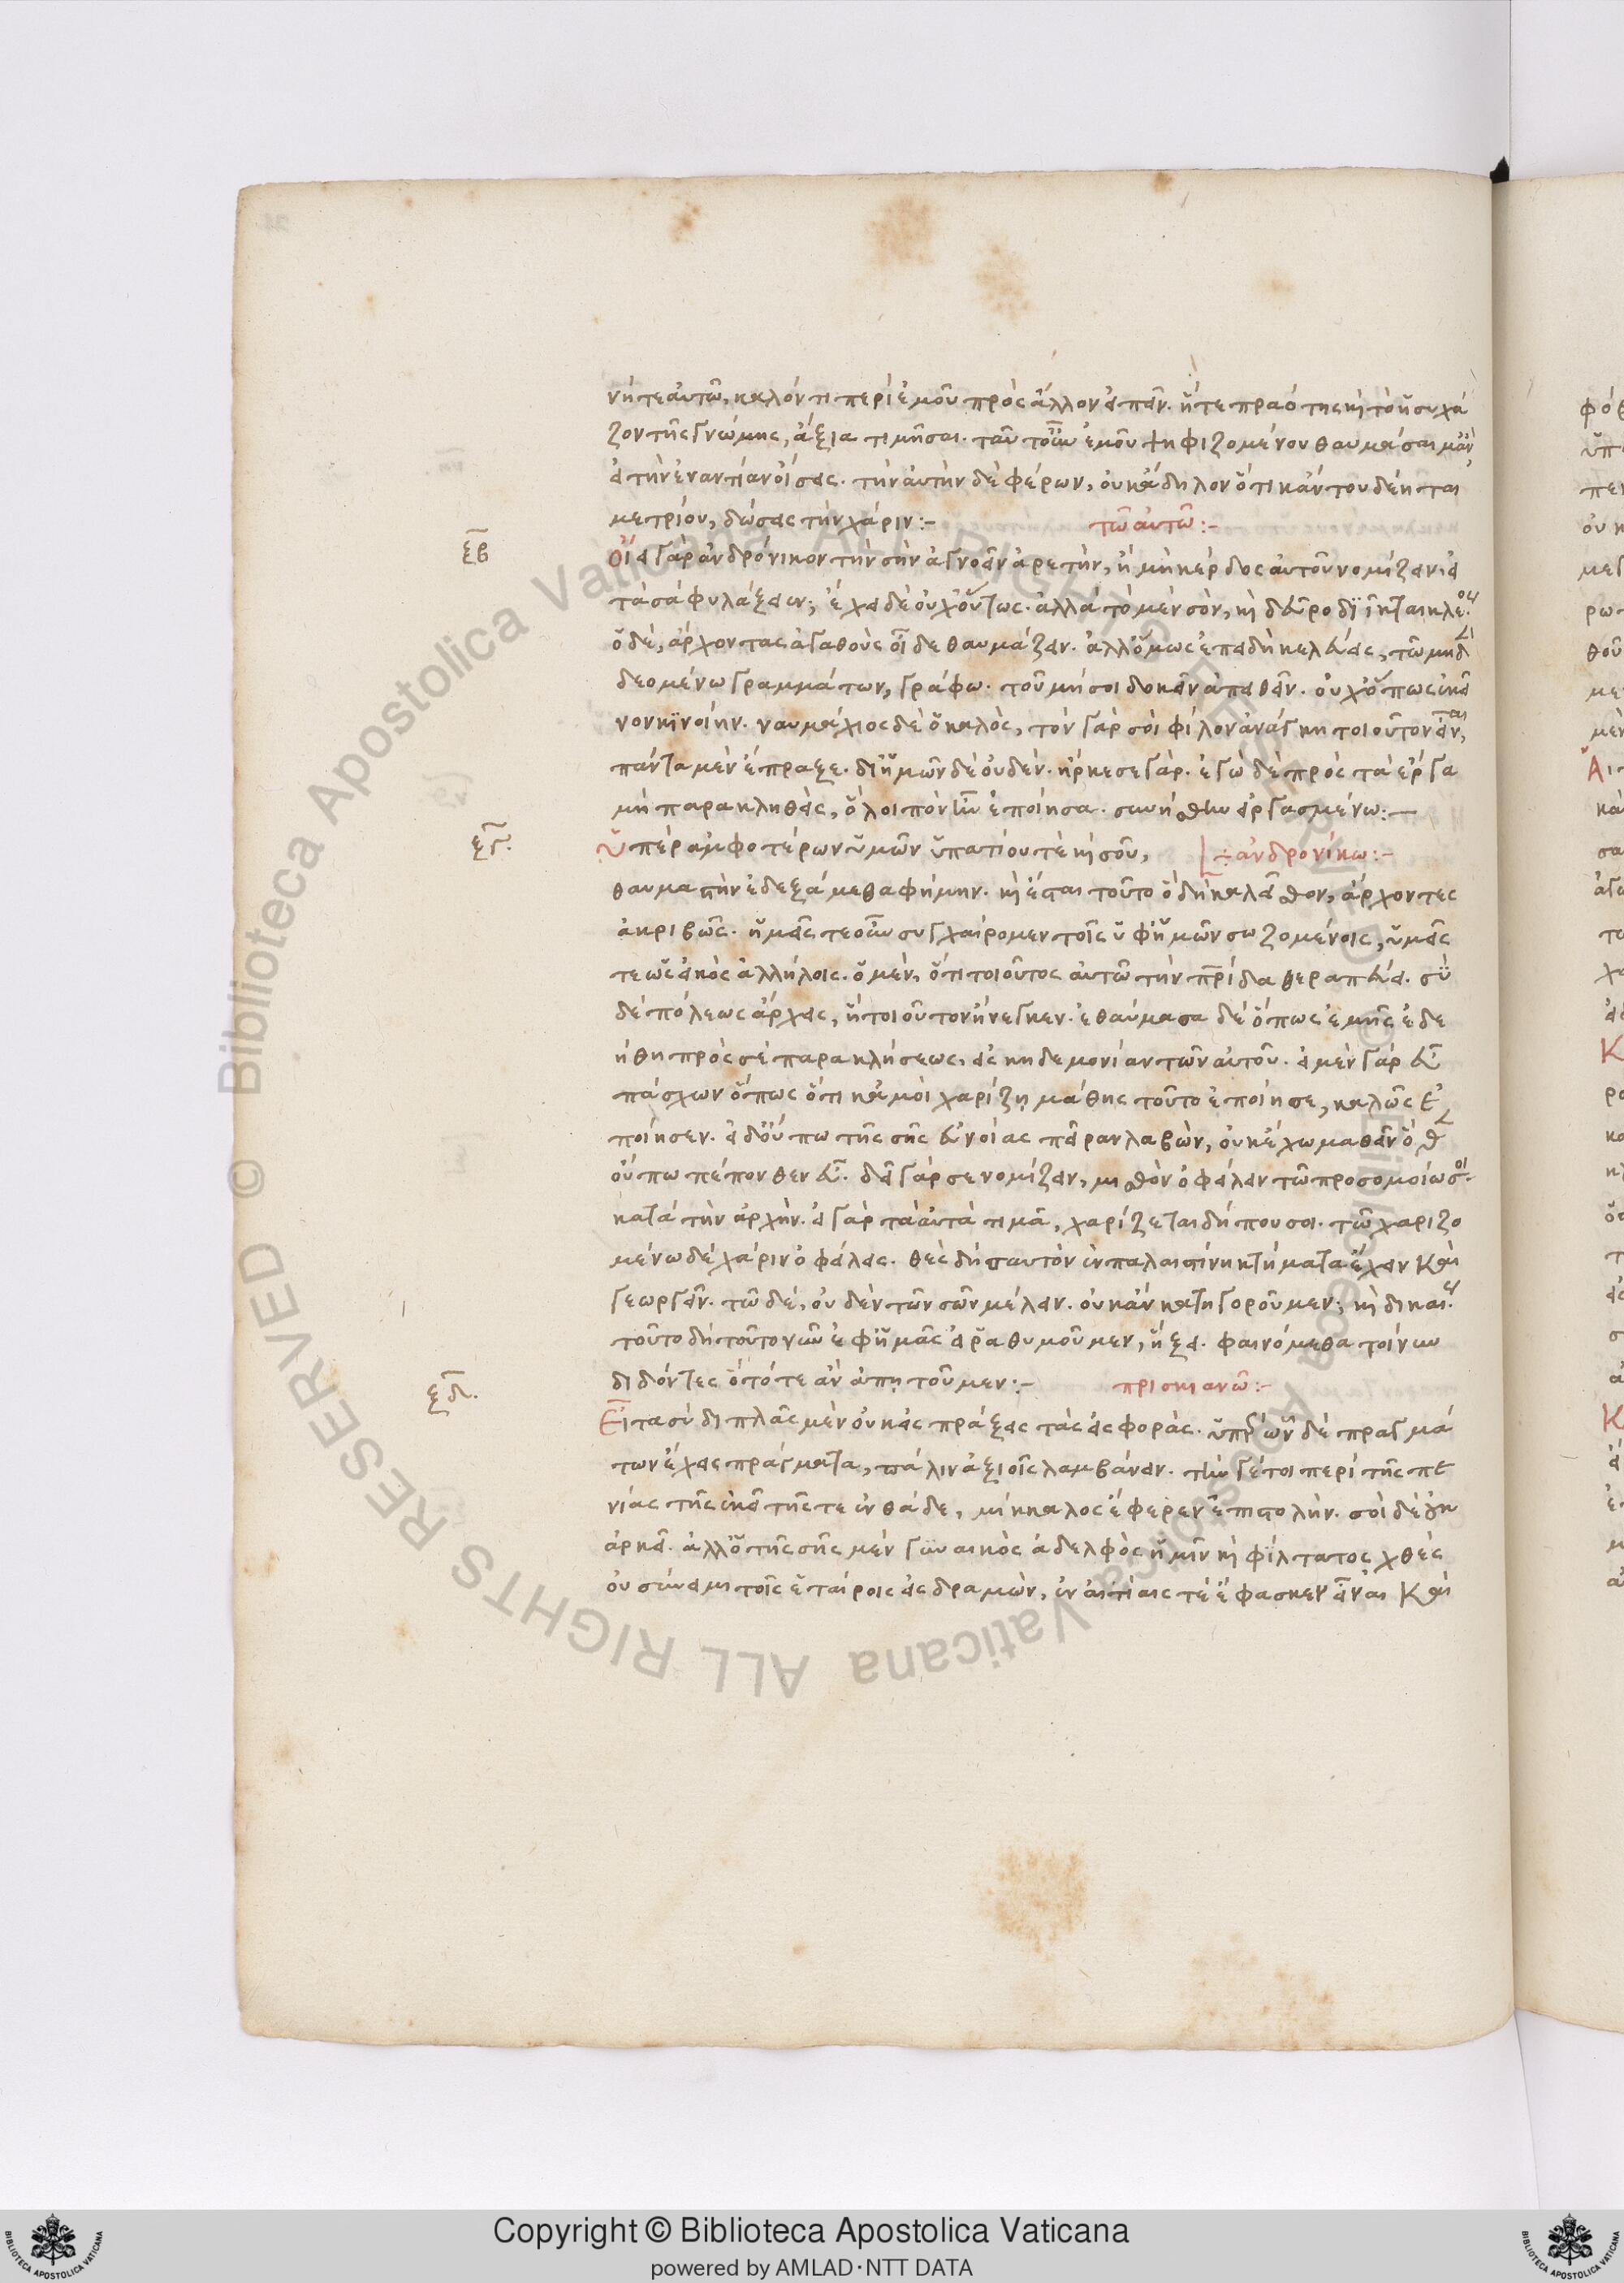 νήτε αὐτῶ, καλόν τι περὶ ἐμοῦ πρὸς ἄλλον εἰπεῖν. ἥτε πραότης καὶ τὸ ἡσυχά
ζον τῆς γνώμης, ἄξια τιμῆσαι. ταῦτ' οὖν ἐμοῦ ψηφιζομένου θαυμάσαιμ' ἂν
εἰ τὴν ἐναντίαν οἴσεις. τὴν αὐτὴν δὲ φέρων, οὐκ ἄδηλον ὅτι κἄν του δέηται
μετρίου, δώσεις τὴν χάριν:–
τῶ αὐτῶ:–
ξβ
Οἴει γὰρ ἀνδρόνικον τὴν σὴν ἀγνοεῖν ἀρετὴν, ἢ μὴ κέρδος αὐτοῦ νομίζειν εἰ
τὰ σὰ φυλάξειεν; ἔχει δὲ οὐχ οὕτως. ἀλλὰ τὸ μὲν σὸν, καὶ δεῦρο διῖκται κλέος.
ὁ δὲ, ἄρχοντας ἀγαθοὺς οἶδε θαυμάζειν. ἀλλ' ὅμως ἐπειδὴ κελεύεις, τῶ μηδὲ
δεομένω γραμμάτων, γράφω. τοῦ μή σοι δοκεῖν ἀπειθεῖν. οὐχ ὅπως ἐκεῖ
νον κινοίην. ναυμάχιος δὲ ὁ καλὸς, τὸν γὰρ σοὶ φίλον ἀνάγκη τοιοῦτον εἶναι,
πάντα μὲν ἔπραξε. δι' ἡμῶν δὲ οὐδέν. ἤρκεσε γάρ. ἐγὼ δὲ πρὸς τὰ ἔργα
μὴ παρακληθεὶς, ὃ λοιπὸν ἦν ἐποίησα. συνήσθην εἰργασμένω:–
ξγ.
Ὑπὲρ ἀμφοτέρων ὑμῶν ὑπατίου τὲ καὶ σοῦ,
ἀνδρονίκω:–
θαυμαστὴν ἐδεξάμεθα φήμην. καὶ ἔσται τοῦτο ὃ δὴ καλεῖσθον, ἄρχοντες
ἀκριβῶς. ἡμεῖς τε οὖν συγχαίρομεν τοῖς ὑφ' ἡμῶν σωζομένοις, ὑμεῖς
τε ὡς εἰκὸς ἀλλήλοις. ὁ μὲν, ὅτι τοιοῦτος αὐτῶ τὴν πρίδα θεραπεύει. σὺ
δὲ πόλεως ἄρχεις, ἣ τοιοῦτον ἤνεγκεν. ἐθαύμασα δὲ ὅπως ἐμῆς ἐδε
ήθη πρὸς σὲ παρακλήσεως, εἰς κηδεμονίαν τῶν αὐτοῦ. εἰ μὲν γὰρ εὖ
πάσχων ὅπως ὅτι κἀμοὶ χαρίζη μάθης τοῦτο ἐποίησε, καλῶς ἐ
ποίησεν. εἰ δ' οὔπω τῆς σῆς εὐνοίας πεῖραν λαβὼν, οὐκ ἔχω μαθεῖν ὅθεν
οὔπω πέπονθεν εὖ. δεῖ γάρ σε νομίζειν, μισθὸν ὀφείλειν τῶ προσομοίω σοι.
κατὰ τὴν ἀρχήν. εἰ γὰρ ταὐτὰ τιμᾶ, χαρίζεται δήπου σοι. τῶ χαριζο
μένω δὲ χάριν ὀφείλεις. θὲς δή παυτὸν ἐν παλαιστίνη κτήματα ἔχειν καὶ
γεωργεῖν. τῶ δὲ, οὐδὲν τῶν σῶν μέλειν. οὐκ ἂν κατηγοροῦμεν; καὶ δικαίως.
τοῦτο δὴ τοῦτο νῶ ἐφ' ἡμᾶς εἰ ῥαθυμοῦμεν, ἥξει. φαινόμεθα τοίνυν
διδόντες ὁπότε ἂν ἀπῃτοῦμεν:–
πρισκιανῶ:–
ξδ.
Εἶτα σὺ διπλᾶς μὲν οὐκ εἰσπράξεις τὰς εἰσφοράς. ὑπὲρ ὧν δὲ πραγμά
των ἔχεις πράγματα, πάλιν ἀξιοῖς λαμβάνειν. τήν γέ τοι περὶ τῆς πε
νίας τῆς ἐκεῖ τῆς τε ἐνθάδε, μίκκαλος ἔφερεν ἐπιστολήν. σοὶ δὲ οὐκ
ἀρκεῖ. ἀλλ' ὁ τῆς σῆς μὲν γυναικὸς ἀδελφὸς ἡμῖν καὶ φίλτατος χθὲς
οὗ σύνειμι τοῖς ἑταίροις εἰσδραμὼν, ἐν αἰτίαις τὲ ἔφασκεν εἶναι καὶ
Copyright © Biblioteca Apostolica Vaticana
powered by AMLAD·NTT DATA